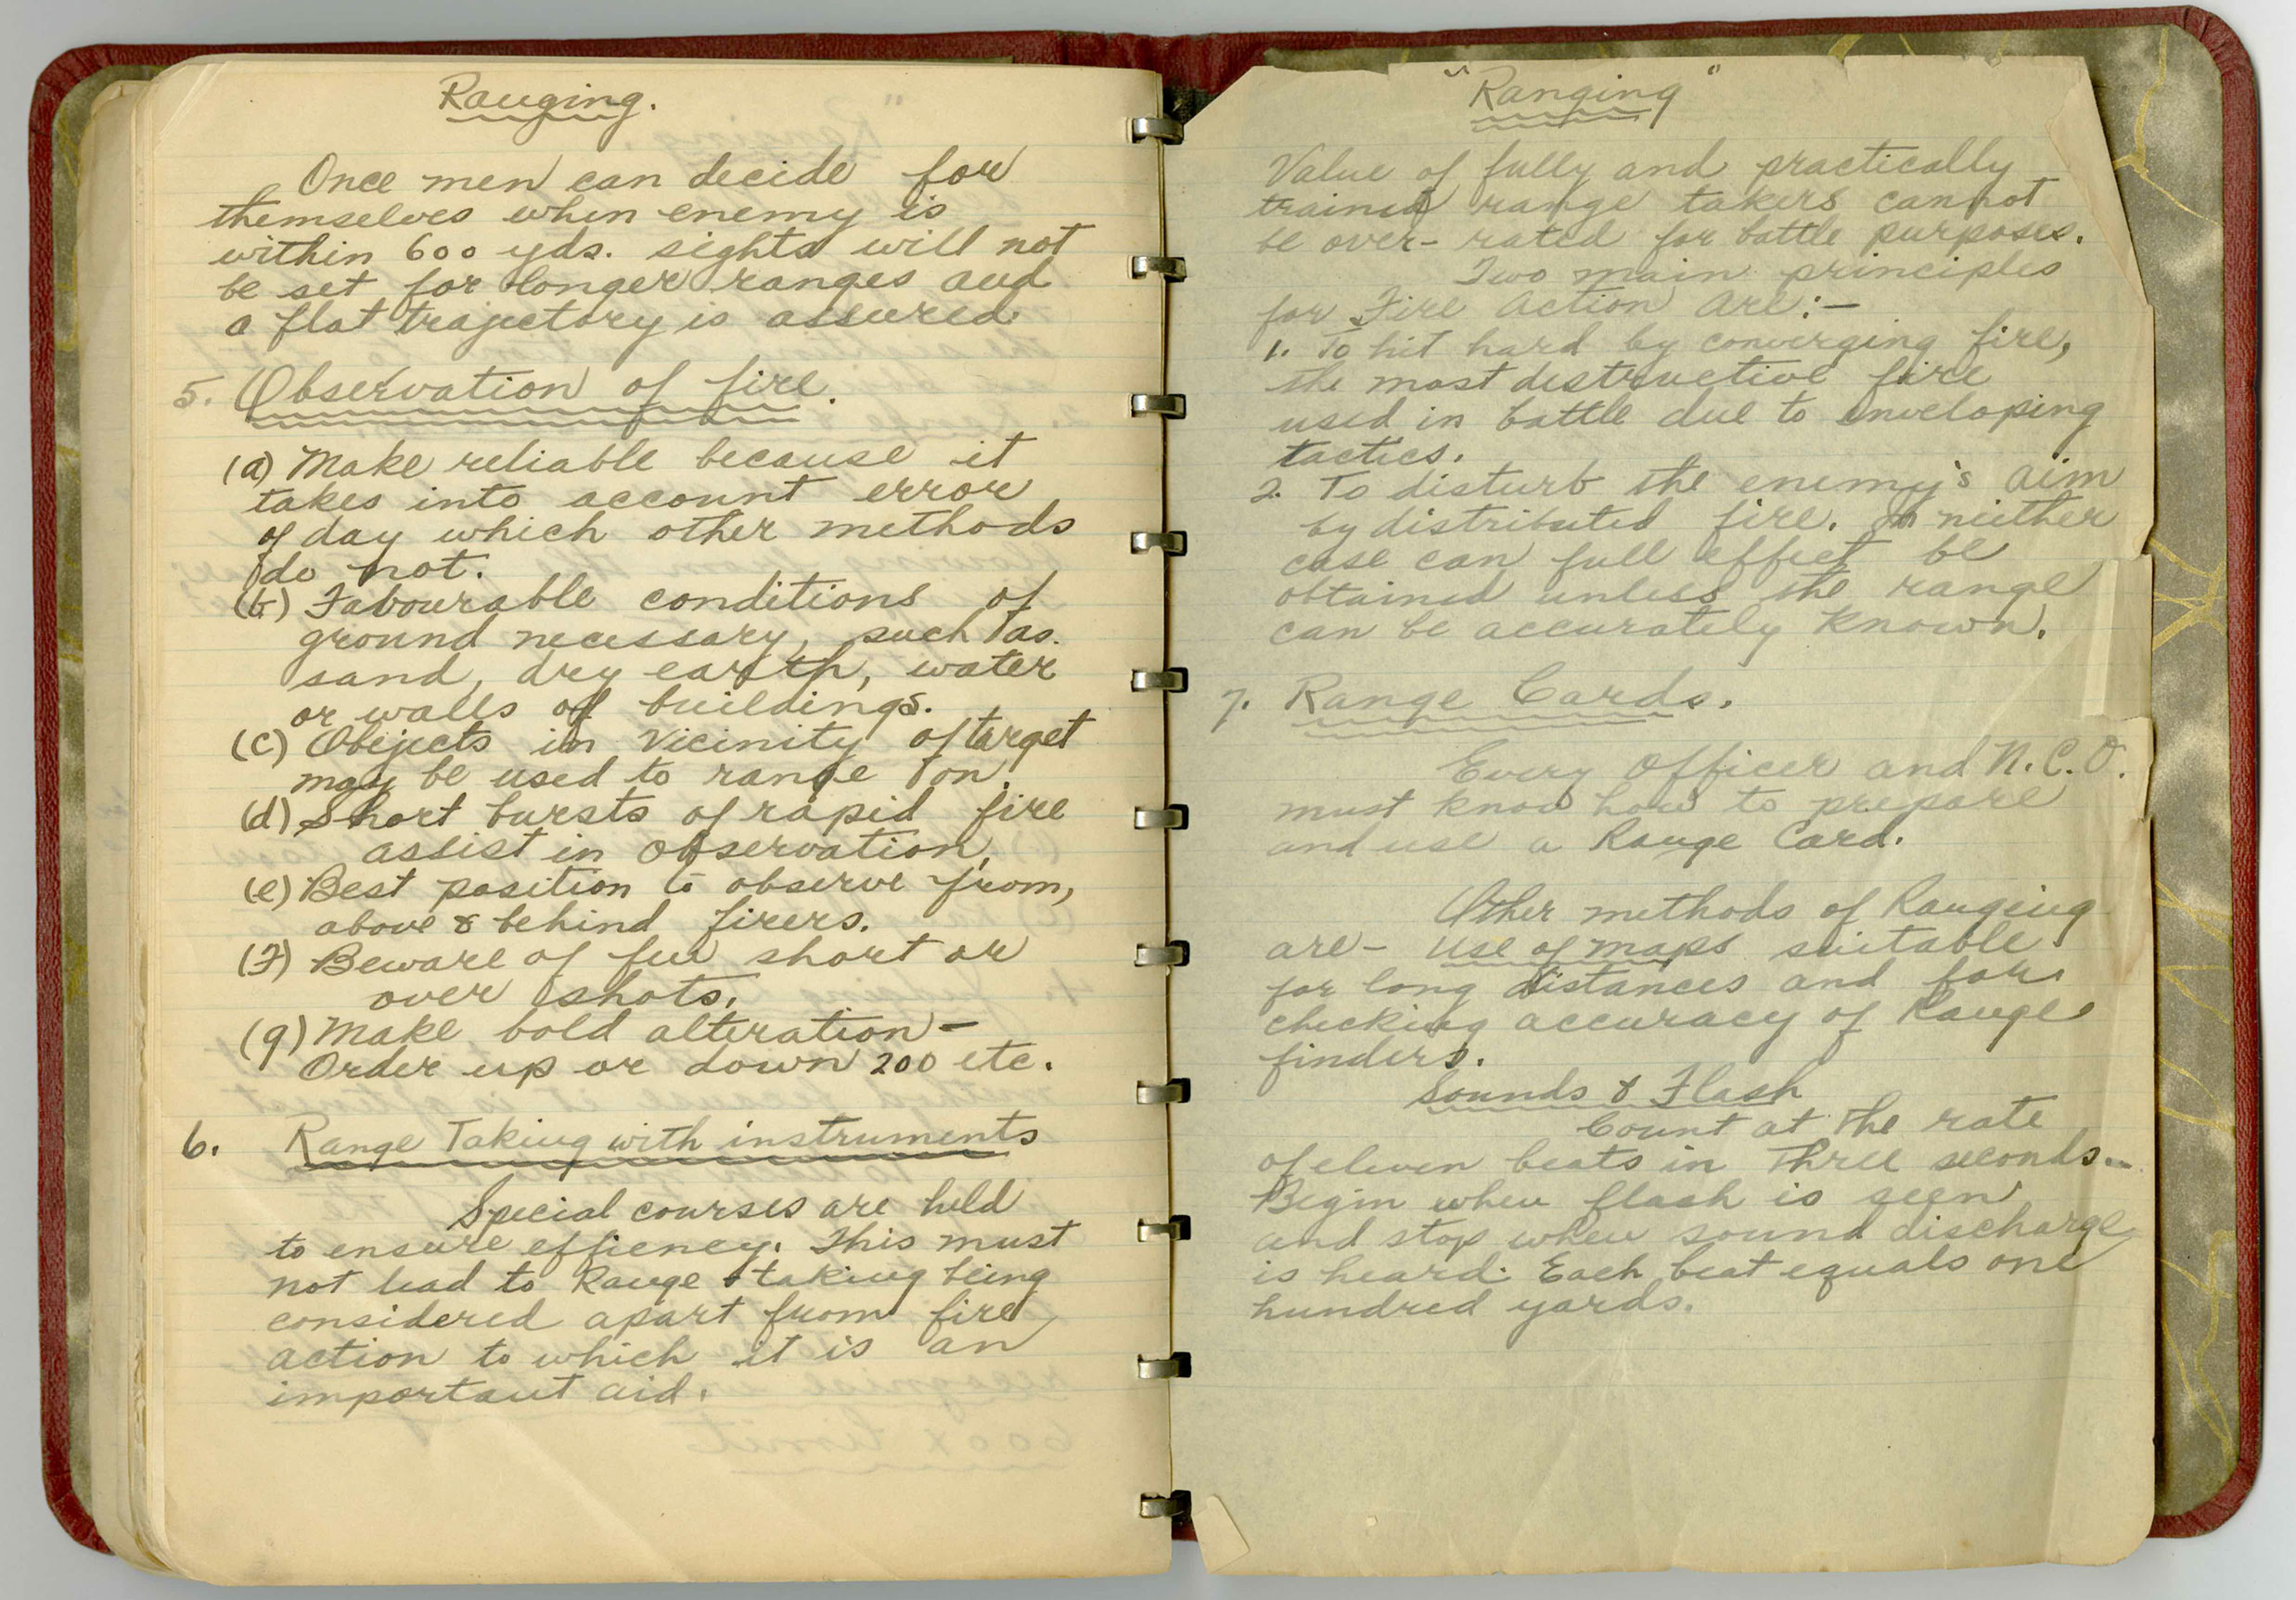 Ranging.
Once men can decide for
themselves when enemy is
within 600 yds. sights will not
be set for longer ranges and
a flat trajectory is assured.
5. Observation of fire.
(a) Make reliable because it
takes into account error
of day which other methods
do not.
(b) Favourable conditions of
ground necessary, such as.
sand, dry earth, water
or walls of buildings.
(c) Objects in vicinity of target
may be used to range on.
(d) Short bursts of rapid fire
assist in observation,
(e) Best position to observe from,
above & behind firers.
(F) Beware of few short or
over shots.
(g) Make bold alteration -
Order up or down 200 etc.
6. Range Taking with instruments
Special courses are held
to ensure effiency. This must
not lead to Range taking being
considered apart from fire
action to which it is an
important aid.
"Ranging"
Value of fully and practically
trained range takers cannot
be over-rated for battle purposes.
Two main principles
for Fire Action are:-
1. To hit hard by converging fire,
the most destructive fire
used in battle due to enveloping
tactics.
2. To disturb the enemy's aim
by distributed fire. In neither
case can full effect be
obtained unless the range
can be accurately known.
7. Range Cards.
Every Officer and N.C.O.
must know how to prepare
and use a Range Card.
Other methods of Ranging
are - use of maps suitable
for long distances and for
checking accuracy of Range
finders.
Sounds & Flash
Count at the rate
of eleven beats in three seconds.
Begin when flash is seen
and stop when sound discharge
is heard. Each beat equals one
hundred yards.